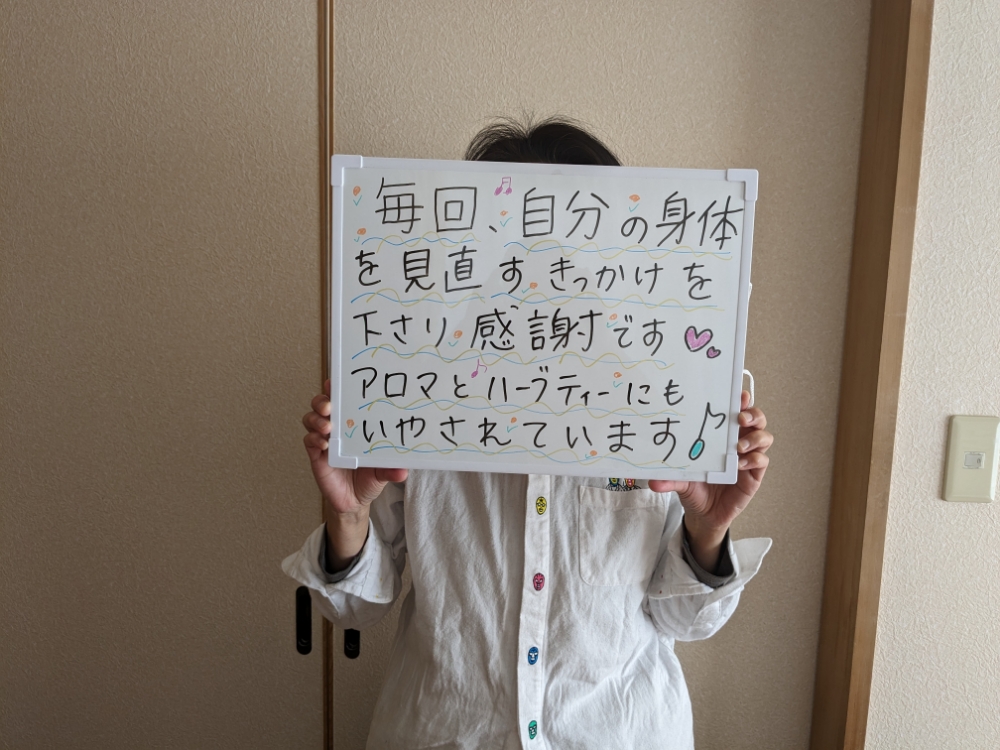 毎回、自分の身体
を見直すきっかけを
下さり感謝です
アロマとハーブティーにも
いやされています